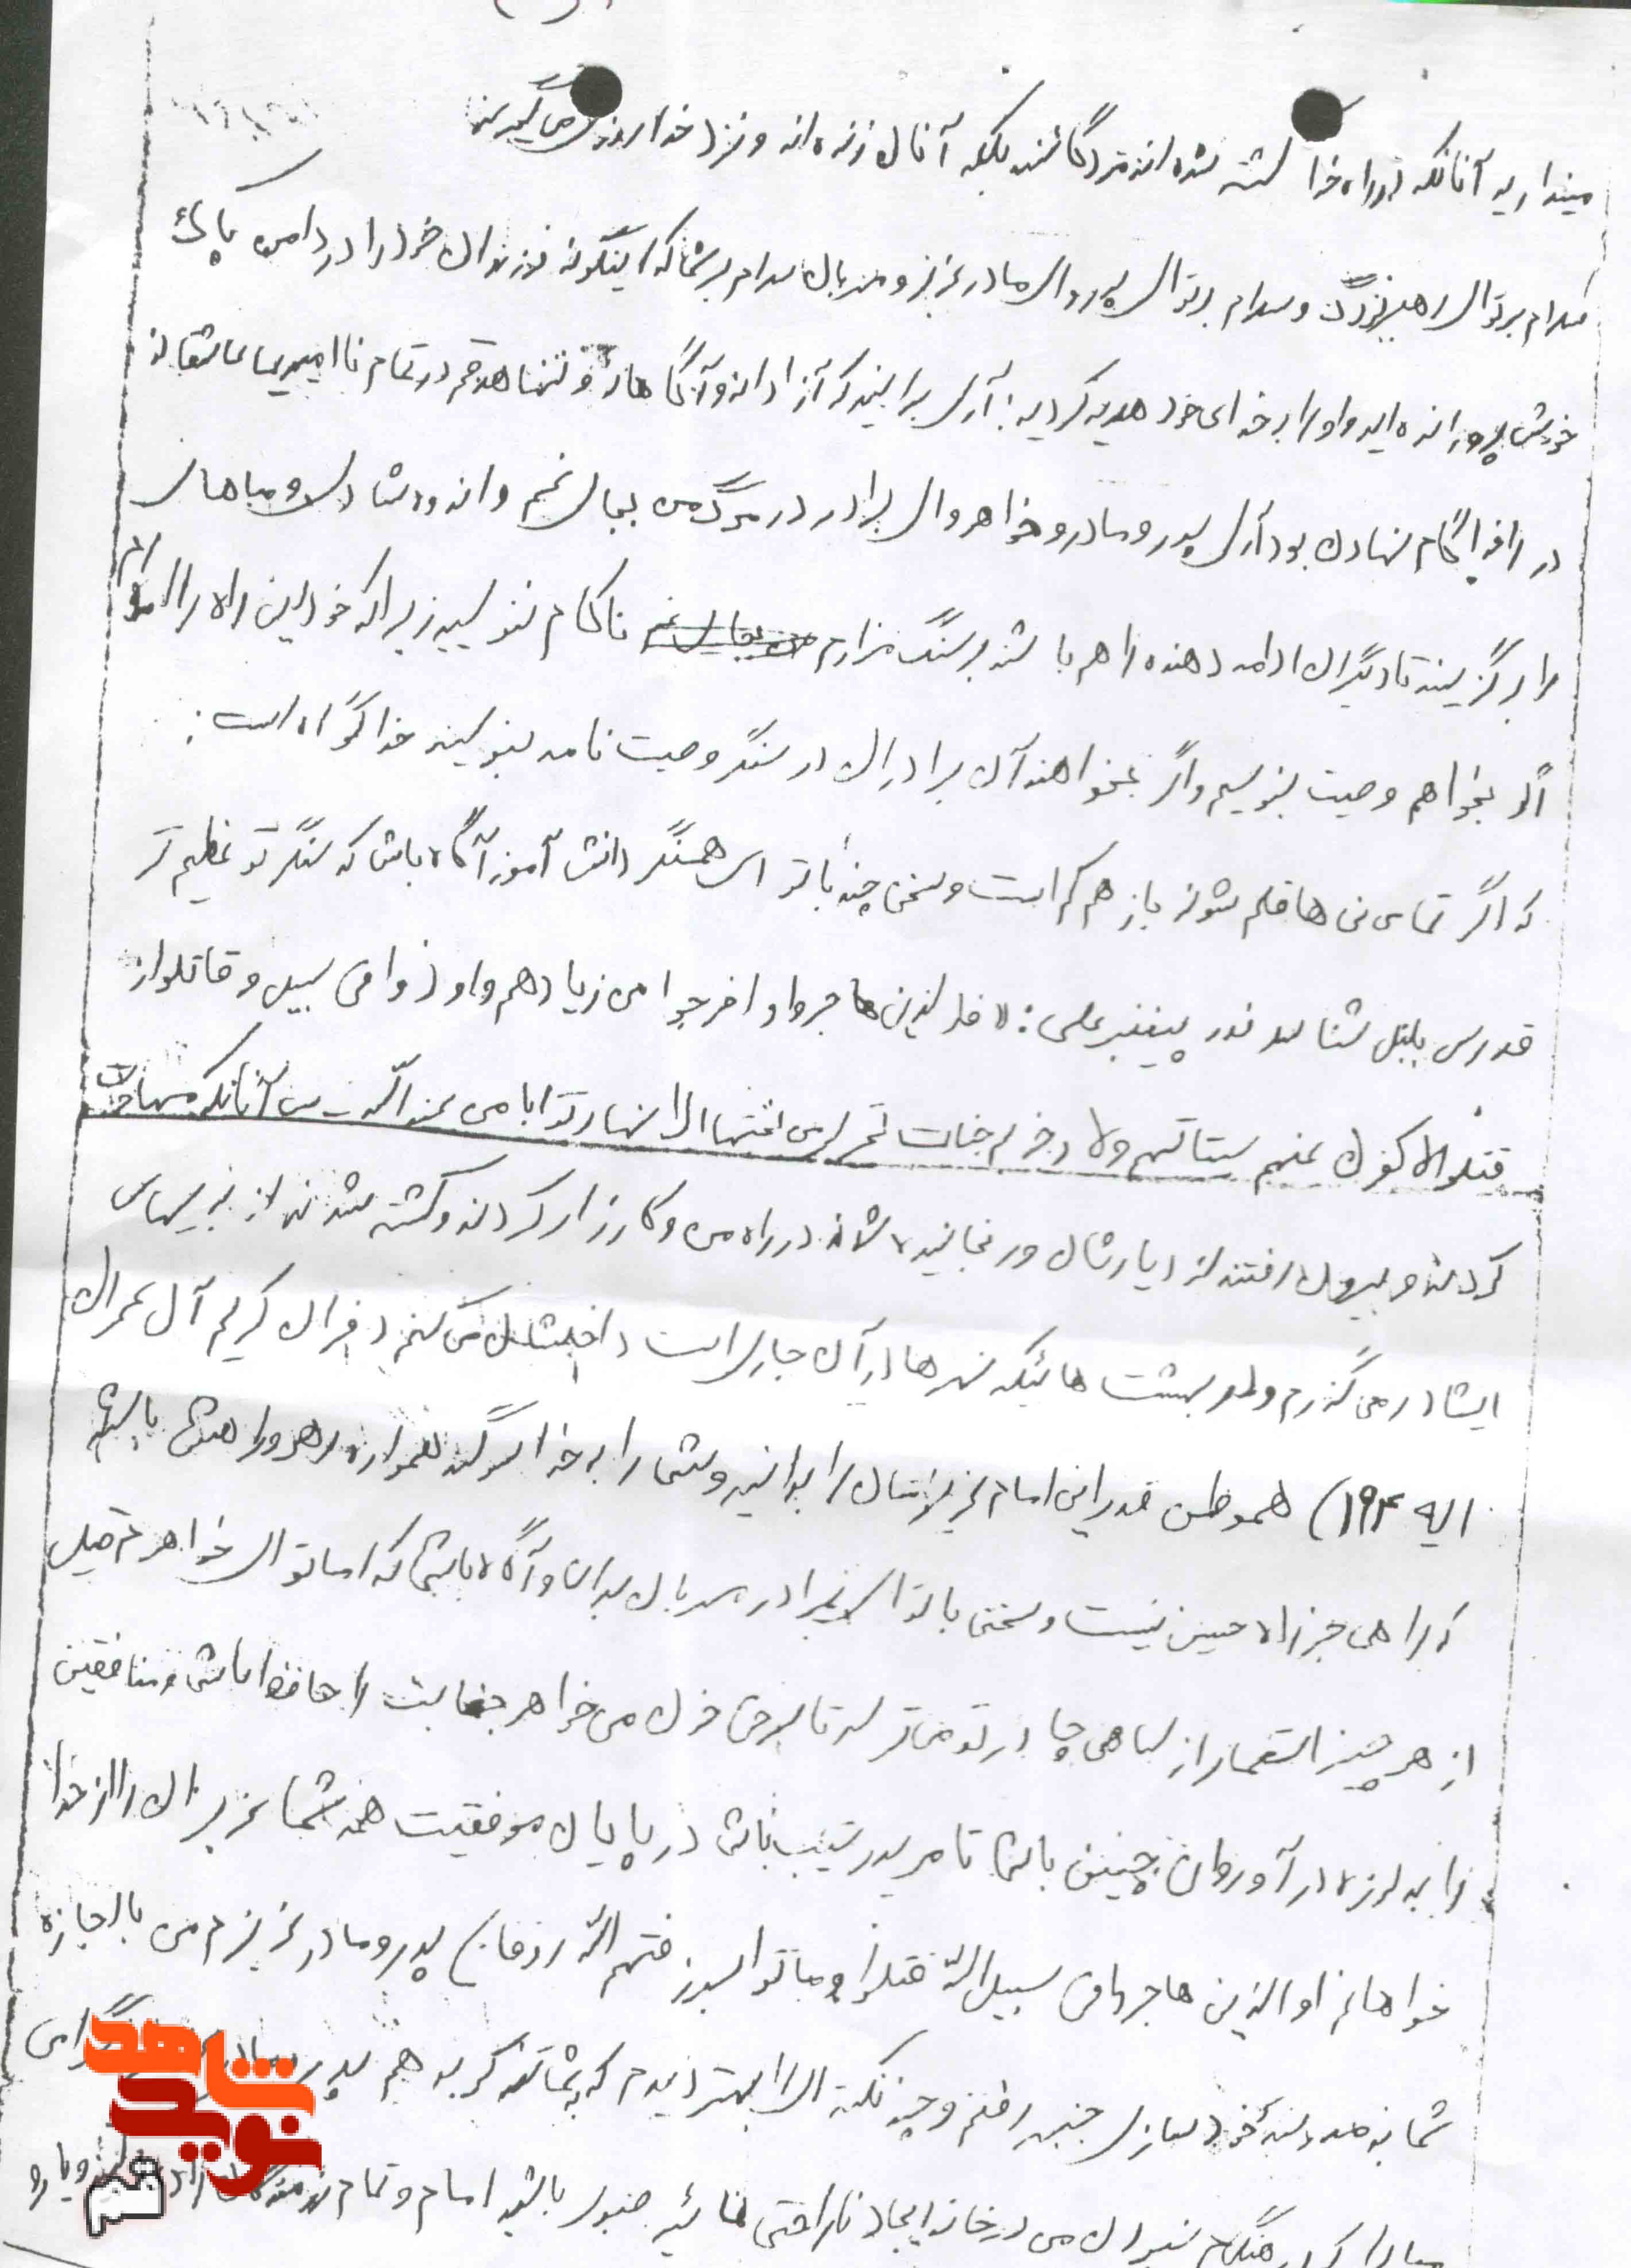 مپندارید آنانکه در راه خدا کشته شده اند مردگانند بلکه آنان زنده اند و نزد خدا روزی می گیرند
سلام بر تو ای رهبر بزرگ و سلام بر تو ای پدر و ای مادر عزیز و مهربان سلام بر شما که اینگونه فرزندان خود را در دامن پاک
خویش پرورانده اید و او را به خدای خود هدیه کردید؛ آری برایند که آزادانه و آگاهانه و تنها هدفم در تمام ناامیدیها عاشقانه
در راه خدا گام نهادن بود آری پدر و مادر و خواهر و ای برادر در مرگ من بجای غم و اندوه شادی و مباهات
را برگزینید تا دیگران ادامه دهنده راهم باشند بر سنگ مزارم ناکام ننویسید زیرا که خود این راه را
اگر بخواهم وصیت بنویسم و اگر بخواهند آن برادران در سنگر وصیت نامه بنویسند خدا گواه است:
که اگر تمامی نی ها قلم شوند باز هم کم است و سخنی چند با تو ای همسنگر دانش آموز آگاه باش که سنگر تو عظیم تر
هاجروا و اخرجوا من زیادهم و اوذوا فی سبیل و قاتلوا
قتلوالاکفرن عنهم سیتاتهم ولا جنات تجری من تحتها الانهار ثوابا من عندالله - پس آنانکه مهاجرت
کردند و بیرون رفتند از دیارشان و رنجانیده شدند در راه من و کارزار کردند و کشته شدند از بدیهای
ایشان در می گذرم و بهشت هائیکه نهرها در آن جاری است داخلشان می کنم (قران کریم آل عمران
ایه ۱۹۴) هموطن قدر این امام عزیزتان را بدانید و شما را به خدا سوگند همواره رهرو راهش باشید
که راهی جز راه حسین نیست و سخنی با تو ای برادر بدان و آگاه باش که اما تو ای خواهرم قبل
از هر چیز استعمار از سیاهی چادر تو می ترسد تا سرخی خون من خواهر حجابت را حافظ باش و منافقین
را به لرزه در آور چنین باش تا در پایان موفقیت همه شما عزیزان را از خدا
خواهانم والذین هاجروا فی سبیل الله قتلوا و ماتوا لیرزقنهم الله رزقا پدر و مادر عزیزم من با اجازه
شما به جبهه رفتم و چند نکته ای را بهتر دیدم که به شما تذکر بدهم پدر و مادر گرامی
هنگام نبودن من در خانه ایجاد ناراحتی صبور باشید امام و تمام رزمندگان را
شاهد
نوید